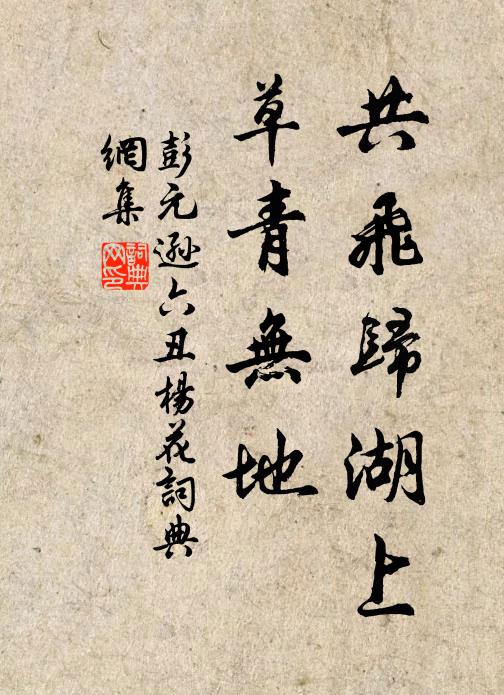 共飛歸湖上
草青無地
彭元遜六丑楊花詞典
網集
詞典
网印